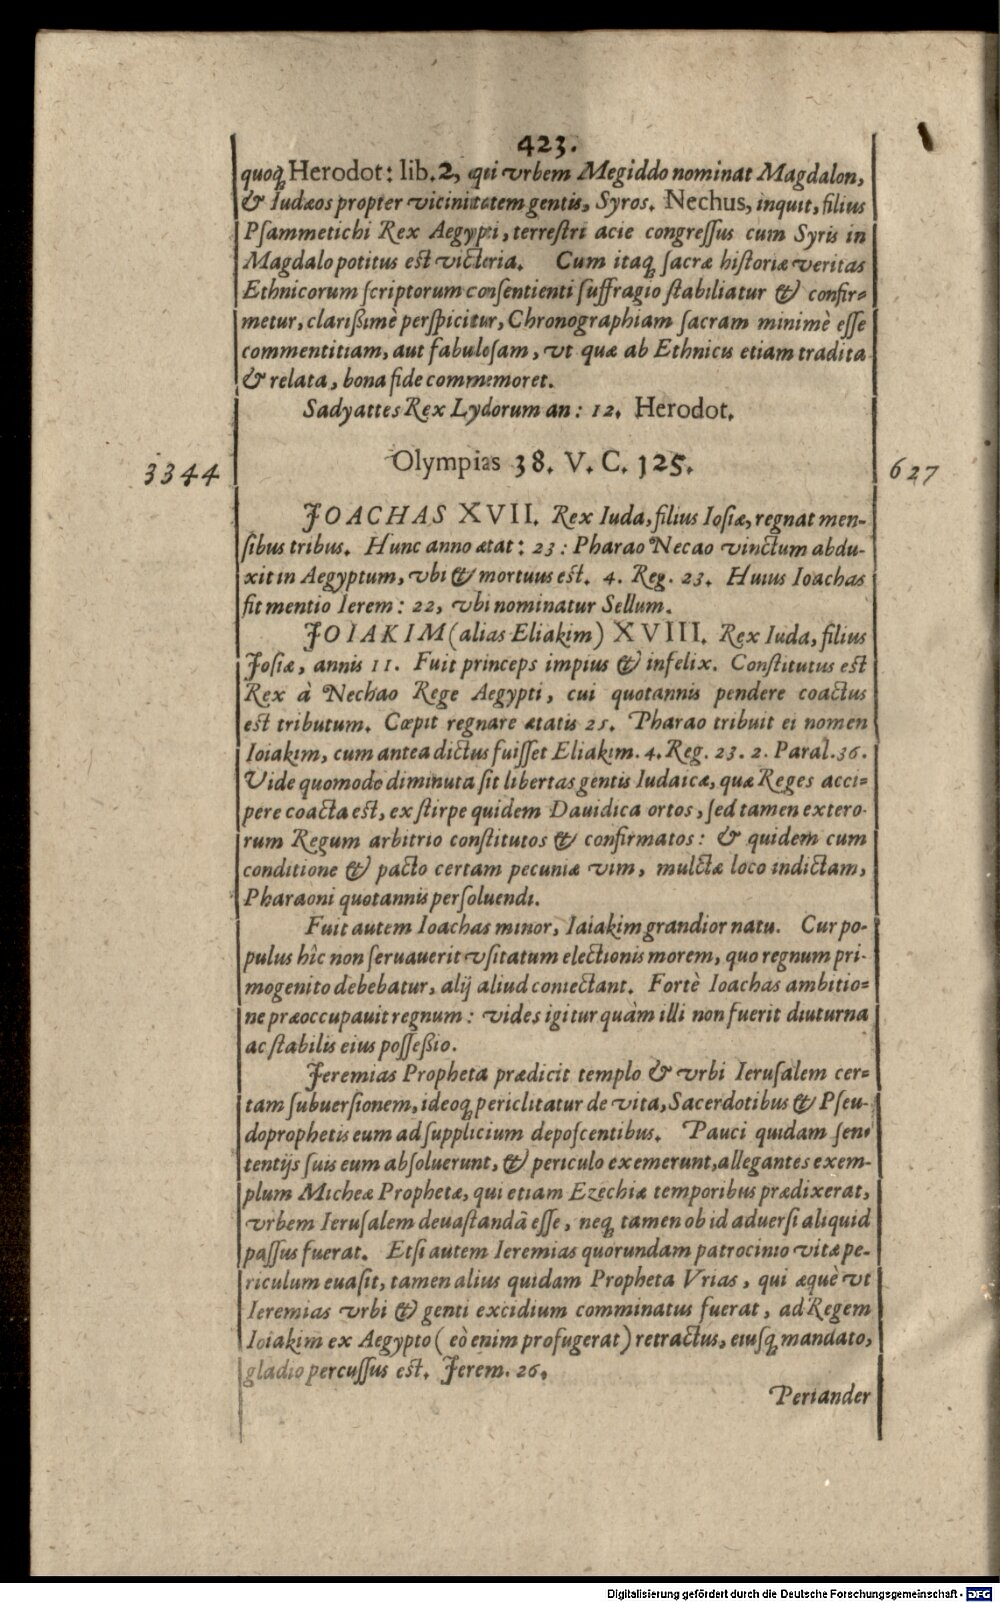 423.
quoq́ Herodot: lib.2, qui vrbem Megiddo nominat Magdalon,
& Iudæos propter vicinitatem gentis, Syros. Nechus, inquit, filius
Psammetichi Rex Aegypti, terrestri acie congressus cum Syris in
Magdalo potitus est victeria. Cum itaq́ sacræ historiæ veritas
Ethnicorum scriptorum consentienti suffragio stabiliatur & confir=
metur, clarißimè perspicitur, Chronographiam sacram minimè esse
commentitiam, aut fabulosam, vt quæ ab Ethnicis etiam tradita
& relata, bona fide commemoret.
Sadyattes Rex Lydorum an: 12. Herodot.
3344 Olympias 38. V. C. 125. 627
JOACHAS XVII. Rex Iuda, filius Iosiæ, regnat men-
sibus tribus. Hunc anno ætat: 23: Pharao Necao vinctum abdu-
xit in Aegyptum, vbi & mortuus est. 4. Reg. 23. Huius Ioachas
fit mentio Ierem: 22, vbi nominatur Sellum.
JOIAKIM (alias Eliakim) XVIII. Rex Iuda, filius
Josiæ, annis 11. Fuit princeps impius & infelix. Constitutus est
Rex à Nechao Rege Aegypti, cui quotannis pendere coactus
est tributum. Cœpit regnare ætatis 25. Pharao tribuit ei nomen
Ioiakim, cum antea dictus fuisset Eliakim. 4. Reg. 23. 2. Paral. 36.
Vide quomodo diminuta sit libertas gentis Iudaicæ, quæ Reges acci=
pere coacta est, ex stirpe quidem Dauidica ortos, sed tamen extero-
rum Regum arbitrio constitutos & confirmatos: & quidem cum
conditione & pacto certam pecuniæ vim, mulctæ loco indictam,
Pharaoni quotannis persoluendi.
Fuit autem Ioachas minor, Iaiakim grandior natu. Cur po-
pulus hîc non seruauerit vsitatum electionis morem, quo regnum pri-
mogenito debebatur, alij aliud coniectant. Fortè Ioachas ambitio=
ne præoccupauit regnum: vides igitur quàm illi non fuerit diuturna
ac stabilis eius posseßio.
Jeremias Propheta prædicit templo & vrbi Ierusalem cer=
tam subuersionem, ideoq́ periclitatur de vita, Sacerdotibus & Pseu-
doprophetis eum ad supplicium deposcentibus. Pauci quidam sen-
tentijs suis eum absoluerunt, & periculo exemerunt, allegantes exem-
plum Micheæ Prophetæ, qui etiam Ezechiæ temporibus prædixerat,
vrbem Ierusalem deuastandã esse, neq́ tamen ob id aduersi aliquid
passus fuerat. Etsi autem Ieremias quorundam patrocinio vitæ pe-
riculum euasit, tamen alius quidam Propheta Vrias, qui æquè vt
Ieremias vrbi & genti excidium comminatus fuerat, ad Regem
Ioiakim ex Aegypto (eò enim profugerat) retractus, eiusq́ mandato,
gladio percussus est. Jerem. 26.
Periander
Digitalisierung gefördert durch die Deutsche Forschungsgemeinschaft - DFG